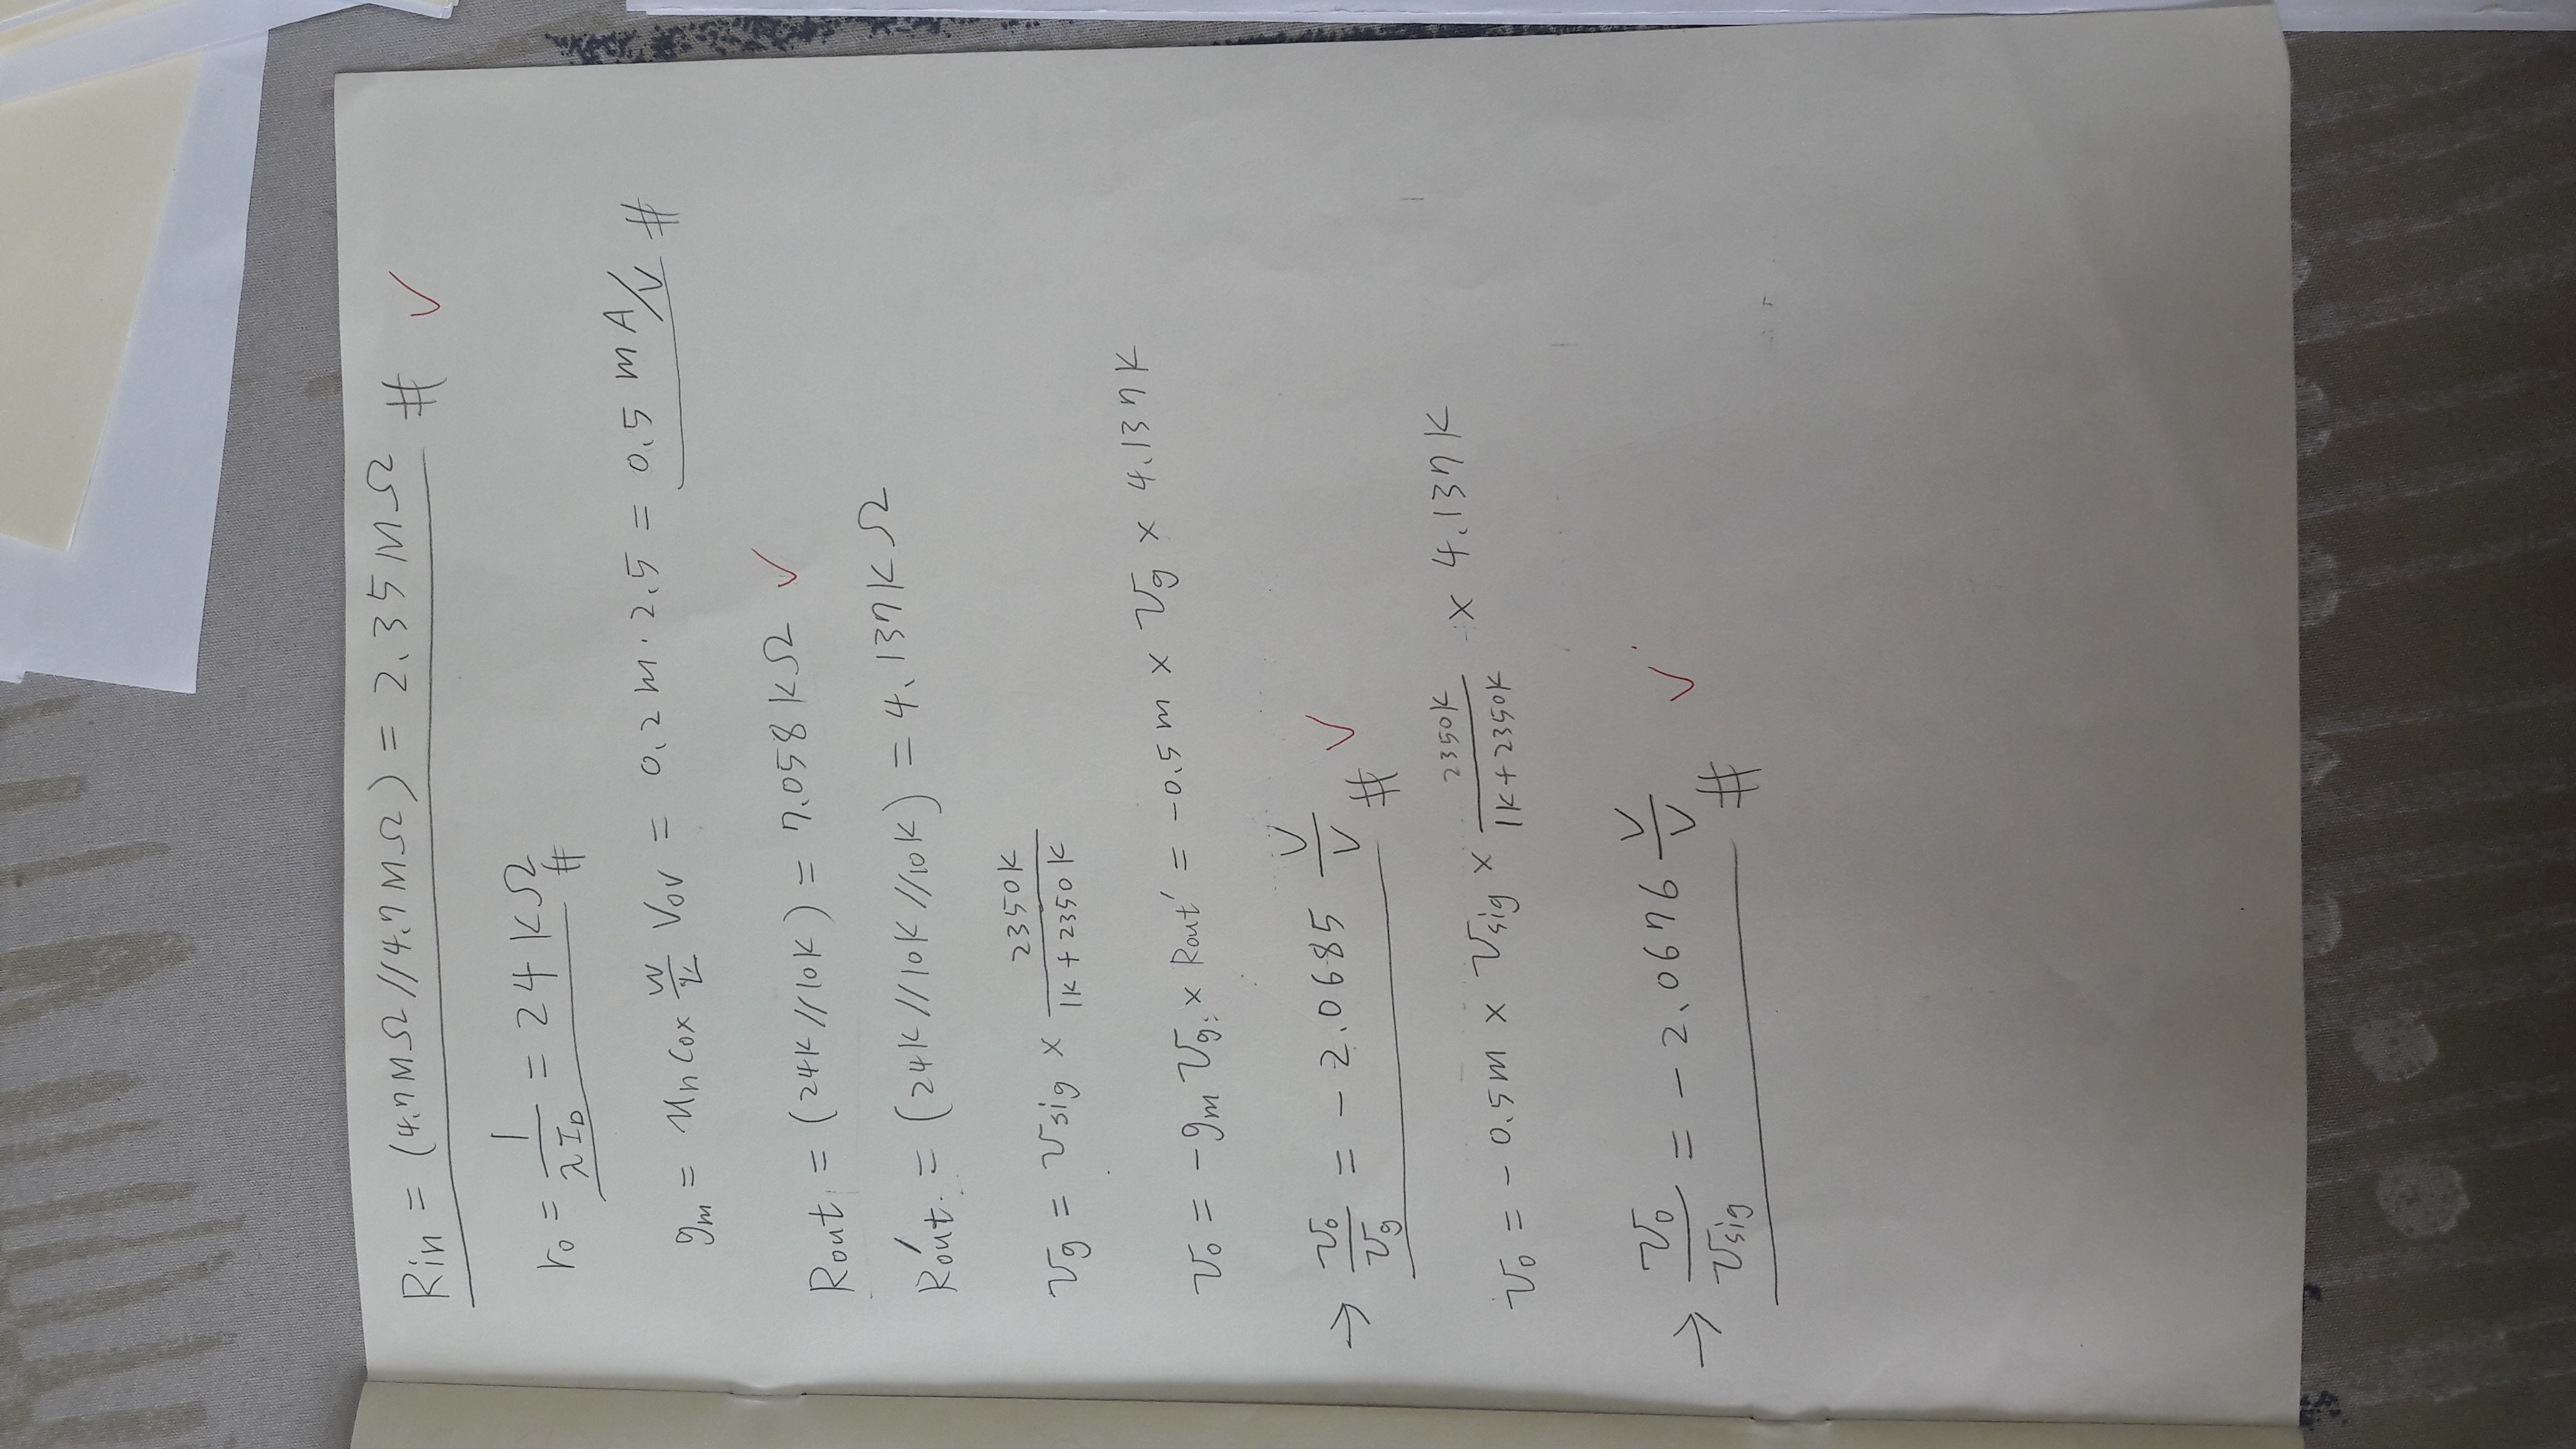 Rin = (4.7MΩ//4.7MΩ) = 2.35MΩ # ✓
r₀ = 1/(λI_D) = 24kΩ #
gm = UnCox W/L Vov = 0.2m · 2.5 = 0.5 mA/V #
Rout = (24K//10K) = 7.058kΩ ✓
R'out = (24K//10K//10K) = 4.137KΩ
vg = vsig × 2350K/(1K+2350K)
v₀ = -gm vg × Rout' = -0.5m × vg × 4.137K
→ v₀/vg = -2.0685 V/V # ✓
v₀ = -0.5m × vsig × 2350K/(1K+2350K) × 4.137K
→ v₀/vsig = -2.0676 V/V # ✓